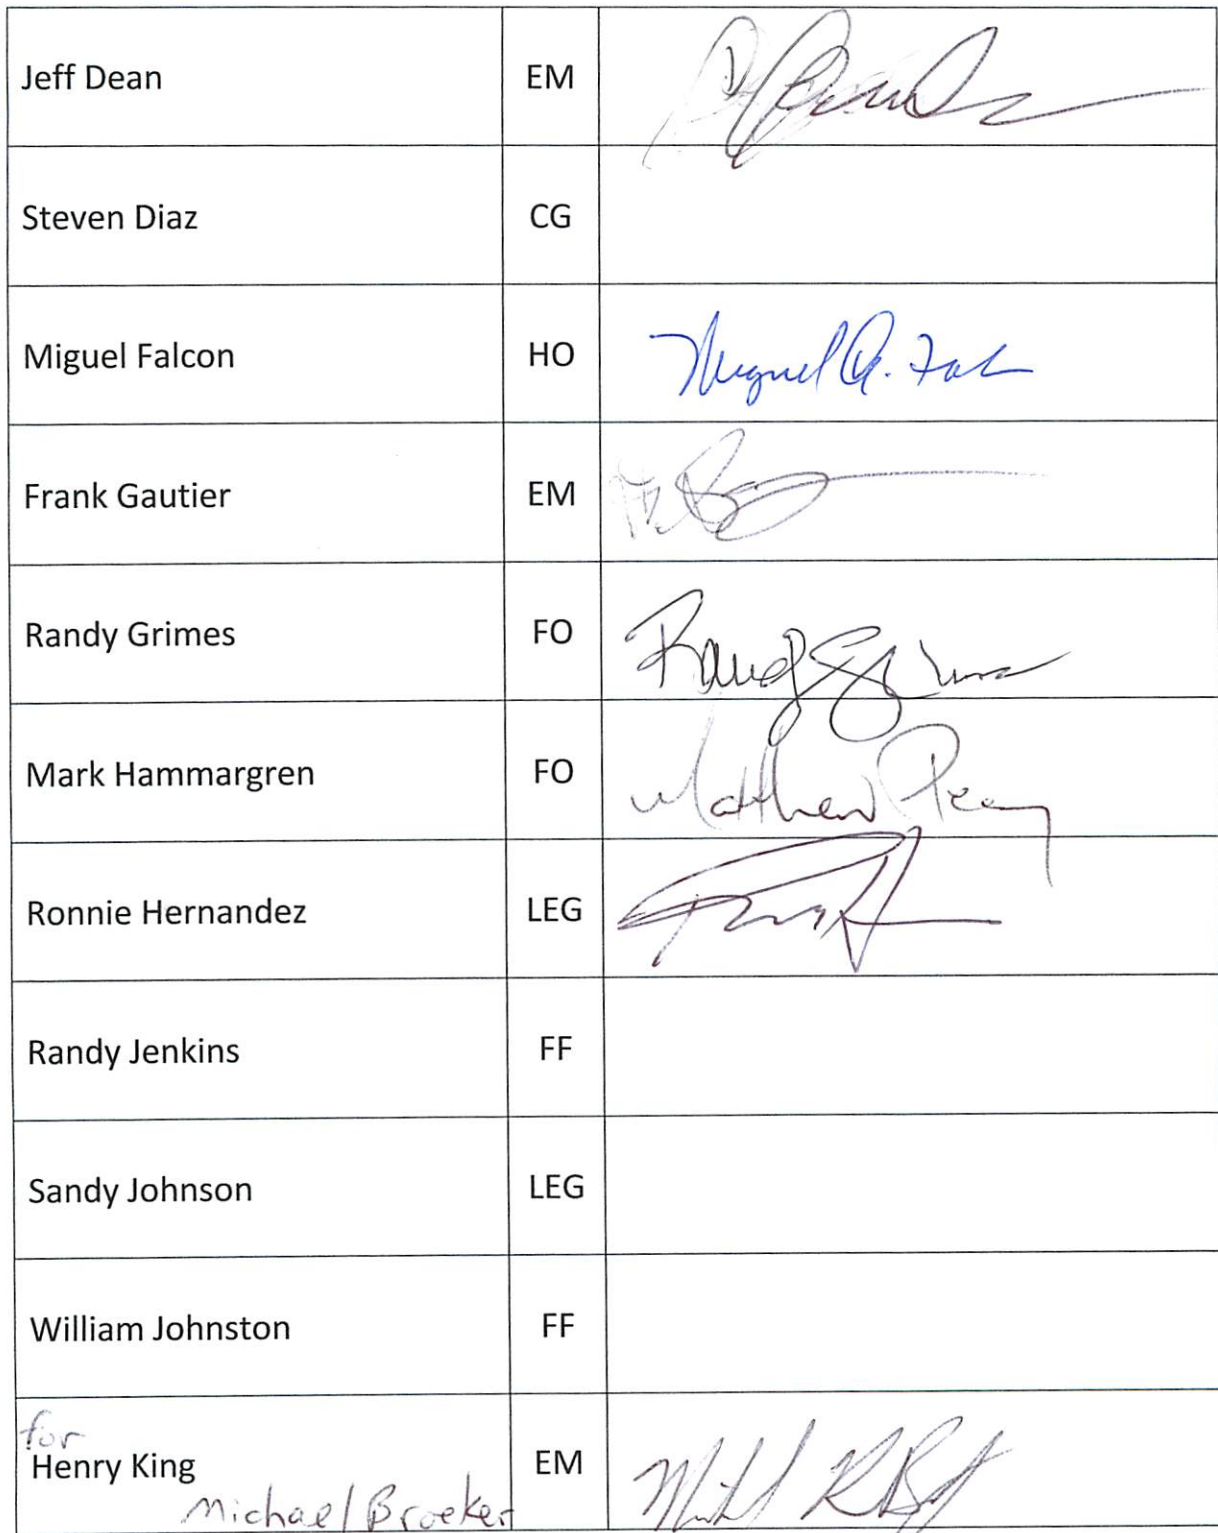 Jeff Dean EM
Steven Diaz CG
Miguel Falcon HO Miguel A.
Frank Gautier EM
Randy Grimes FO Randy Grimes
Mark Hammargren FO Matthew
Ronnie Hernandez LEG
Randy Jenkins FF
Sandy Johnson LEG
William Johnston FF
for
Henry King EM
Michael Broeker